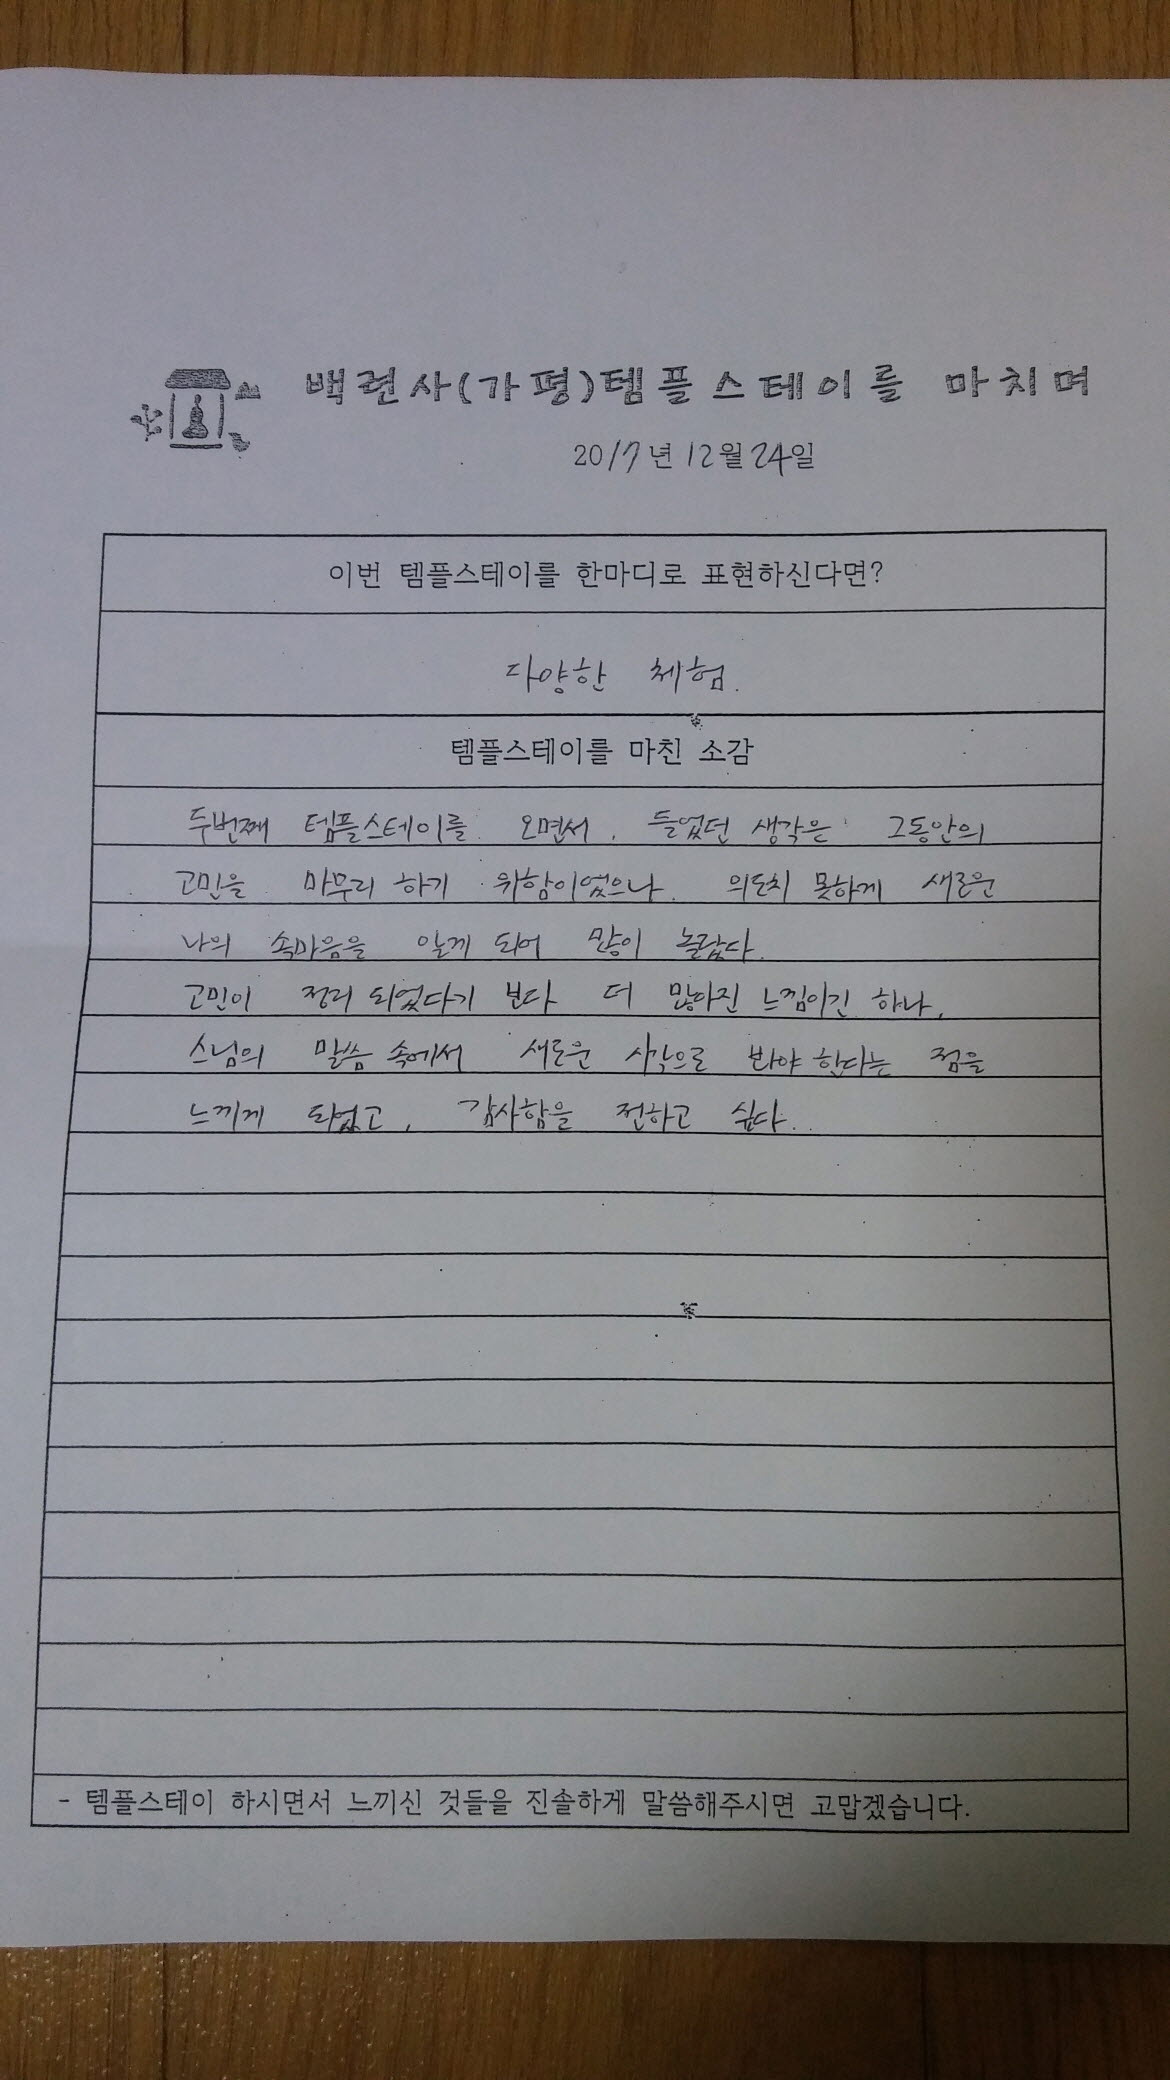 백련사(가평)템플스테이를 마치며
2017년 12월 24일
이번 템플스테이를 한마디로 표현하신다면?
다양한 체험.
템플스테이를 마친 소감
두번째 템플스테이를 오면서, 들었던 생각은 그동안의
고민을 마무리 하기 위함이었으나 의도치 못하게 새로운
나의 속마음을 알게 되어 많이 놀랐다.
고민이 정리 되었다기 보다 더 많아진 느낌이긴 하나,
스님의 말씀 속에서 새로운 시각으로 봐야 한다는 점을
느끼게 되었고, 감사함을 전하고 싶다.
- 템플스테이 하시면서 느끼신 것들을 진솔하게 말씀해주시면 고맙겠습니다.